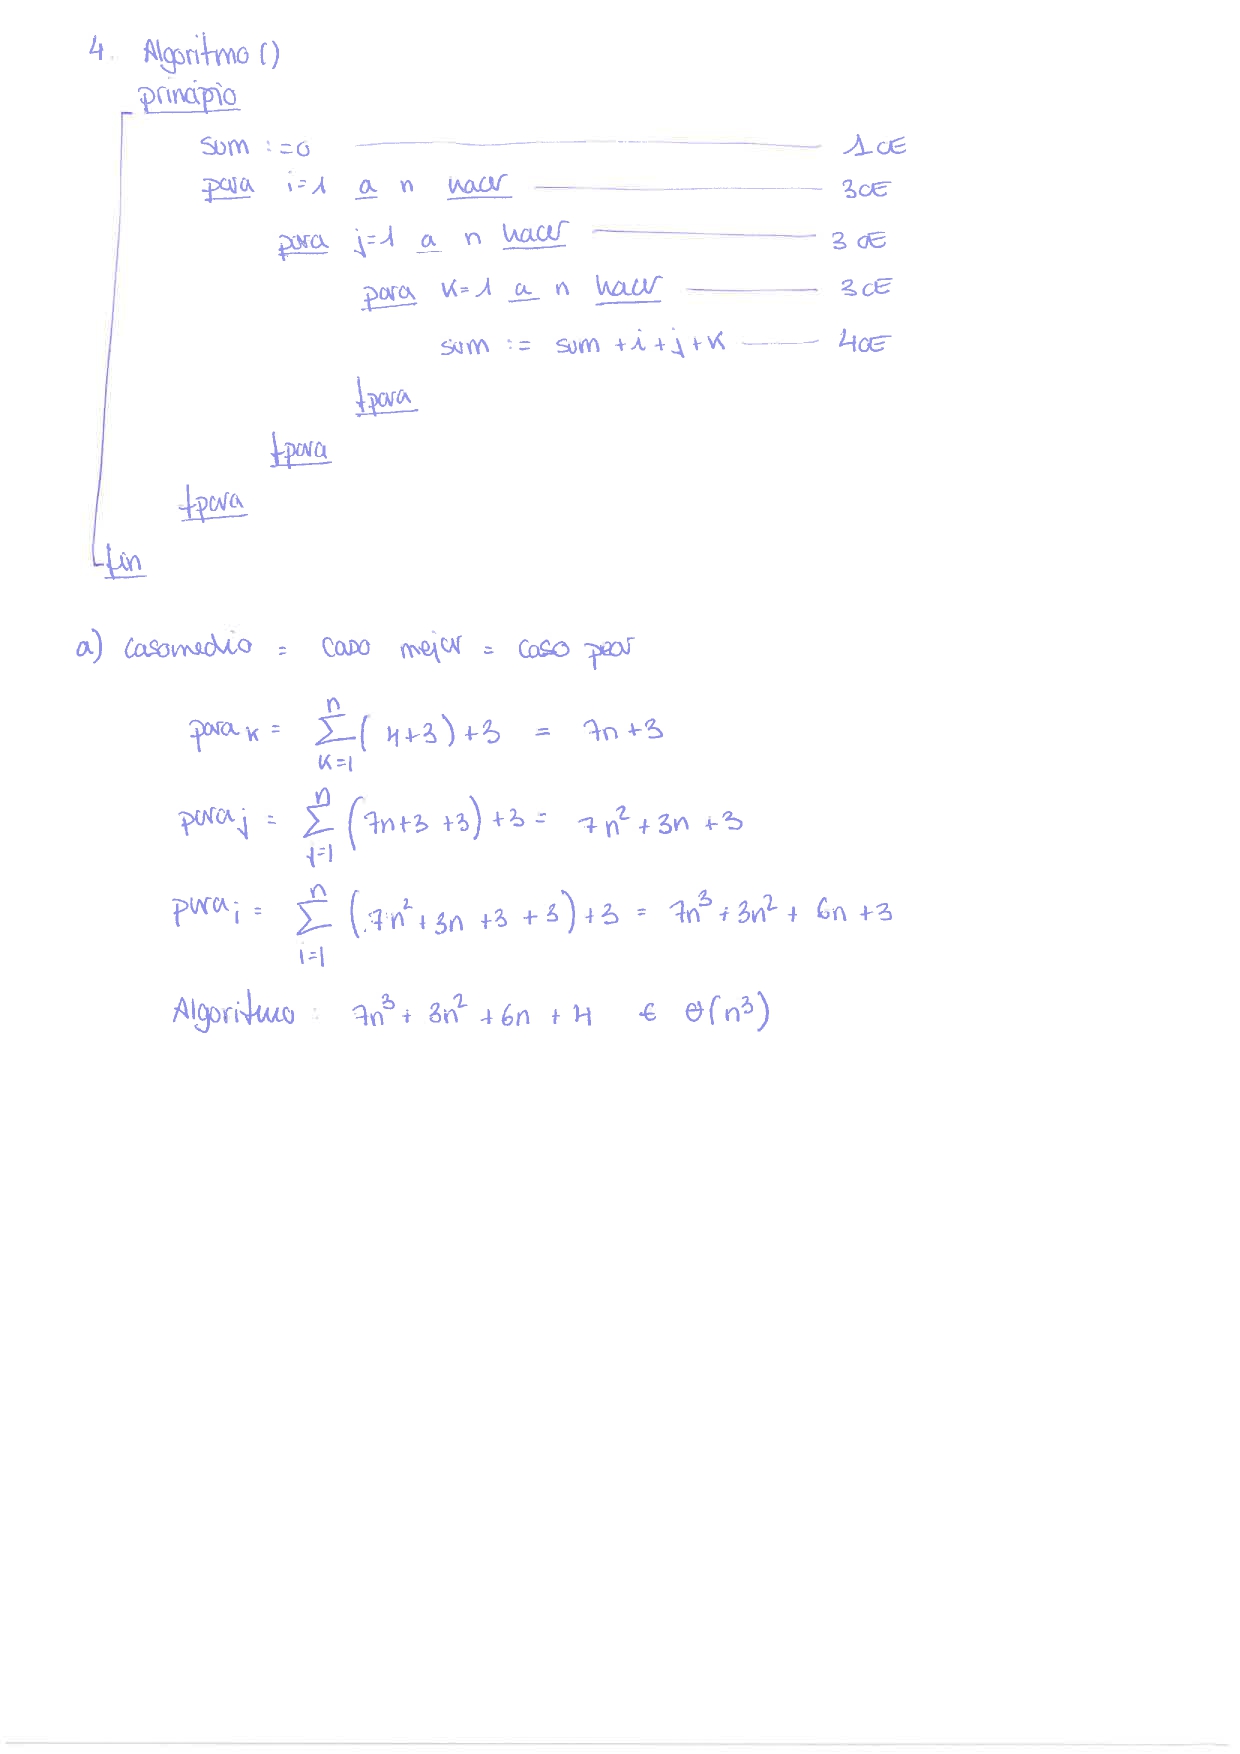 4. Algoritmo ()
principio
sum := 0 1 OE
para i=1 a n hacer 3 OE
para j=1 a n hacer 3 OE
para k=1 a n hacer 3 OE
sum := sum + i + j + k 4 OE
fpara
fpara
fpara
fin
a) caso medio = caso mejor = caso peor
para k = Σ_{k=1}^{n} (4+3) + 3 = 7n + 3
para j = Σ_{j=1}^{n} (7n+3 +3) + 3 = 7n² + 3n + 3
para i = Σ_{i=1}^{n} (7n² + 3n + 3 + 3) + 3 = 7n³ + 3n² + 6n + 3
Algoritmo : 7n³ + 3n² + 6n + 4 ∈ Θ(n³)